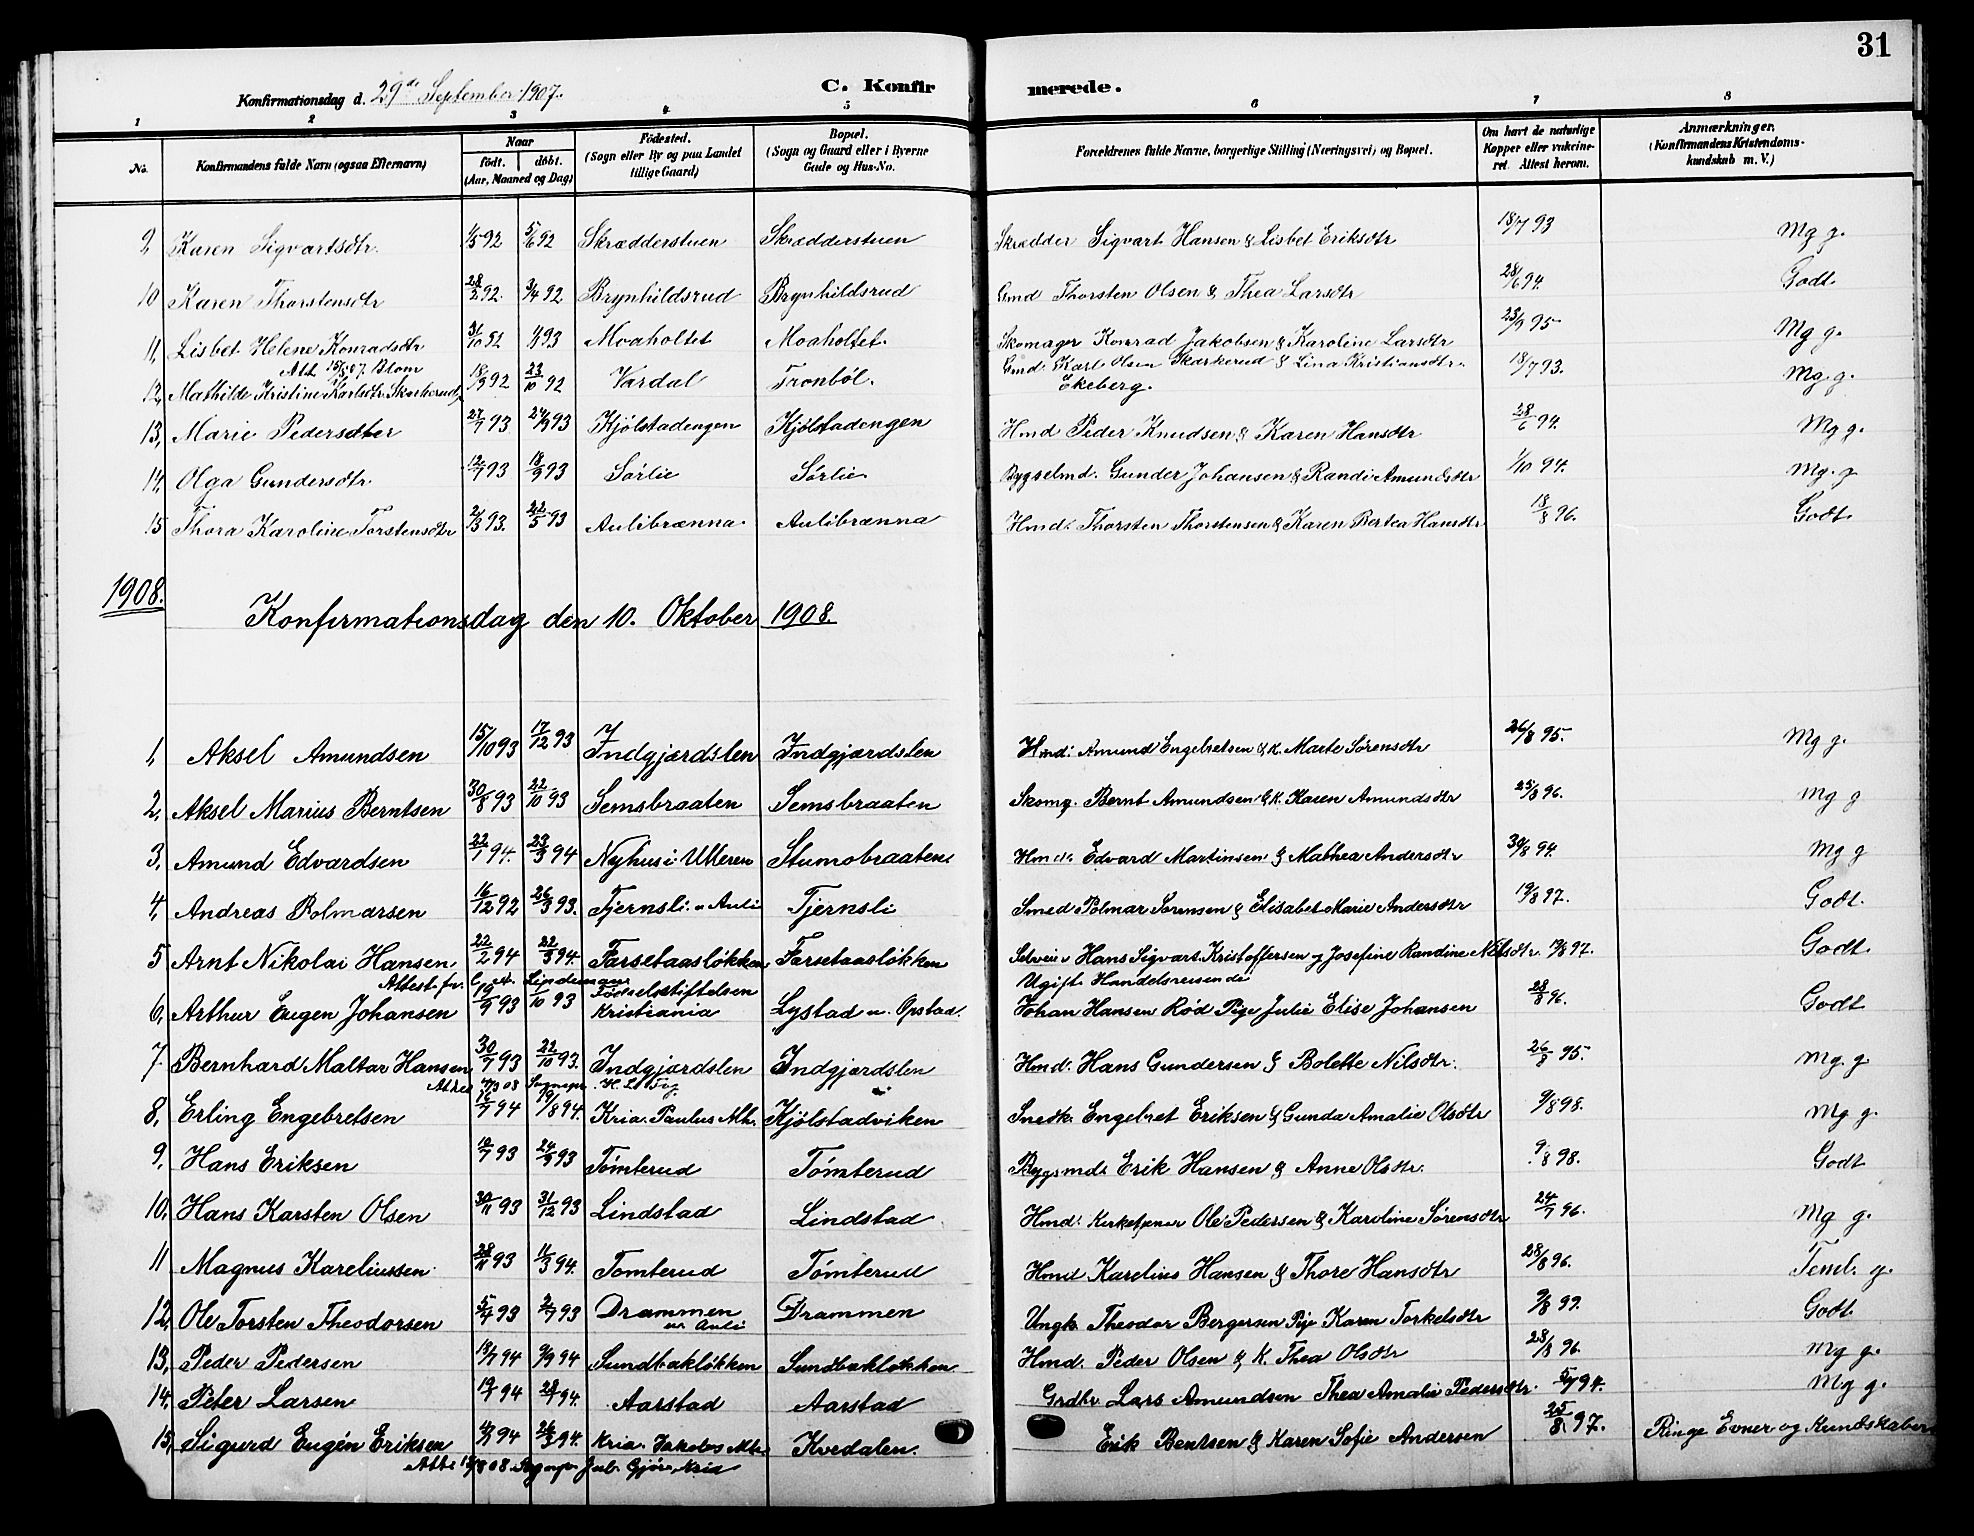 31
Konfirmationsdag d. 29de September 1907.
C. Konfirmerede.
1 2 3 4 5 6 7 8
No. Konfirmandens fulde Navn (ogsaa Efternavn) Naar født. døbt. (Aar, Maaned og Dag) Fødested. (Sogn eller By og paa Landet tillige Gaard) Bopæl. (Sogn og Gaard eller i Byerne Gade og Hus-No. Forældrenes fulde Navne, borgerlige Stilling (Næringsvei) og Bopæl. Om havt de naturlige Kopper eller vakcineret. Attest herom. Anmærkninger. (Konfirmandens Kristendomskundskab m. V.)
9, Karen Sigvartsdtr. 1/5 92 5/6 92 Skrædderstuen Skrædderstuen Skrædder Sigvart Hansen & Lisbet Eriksdtr 18/7 93 Mg g.
10 Karen Thorstensdtr 28/2 92. 3/4 92 Brynhildsrud Brynhildsrud Gmd Thorsten Olsen & Thea Larsdtr 28/6 94. Godt.
11, Lisbet Helene Konradsdtr 31/10 92 1/1 93 Moaholtet Moaholtet. Skomager Konrad Jakobsen & Karoline Larsdtr 23/9 95 Mg g.
Att 15/8 07. Blom
12, Mathilde Kristine Karlsdtr. Skarkerud 18/9 92 23/10 92 Vardal Tronböl. Gmd. Karl Olsen Skarkerud & Lina Kristiansdtr. Ekeberg. 18/7 93. Mg. g.
13, Marie Pedersdtter 27/7 93 24/9 93 Kjölstadengen Kjölstadengen Hmd Peder Knudsen & Karen Hansdtr 28/6 94. Mg g.
14, Olga Gundersdtr. 12/7 93 18/9 93 Sørlie Sørlie Bygselmd. Gunder Johansen & Randi Amundsdtr 1/10 94. Mg. g
15 Thora Karoline Torstensdtr 2/3 93. 22/5 93 Aulibrænna. Aulibrænna Hmd. Thorsten Thorstensen & Karen Bertea Hansdtr 18/8 96. Godt.
1908.
Konfirmationsdag den 10. Oktober 1908.
1, Aksel Amundsen 15/10 93 17/12 93 Indgjærdslen Indgjærdslen Hmd. Amund Engebretsen & K. Marte Sørensdtr 26/8 95. Mg g.
2, Aksel Marius Berntsen 30/8 93 22/10 93 Semsbraaten Semsbraaten Skomg. Bernt Amundsen & K. Karen Amundsdtr 25/8 96. Mg g
3, Amund Edvardsen 22/1 94. 23/3 94 Nyhus i Ulleren Stumobraaten Hmd. Edvard Martinsen & Mathea Andersdtr 30/8 94. Mg g
4, Andreas Bolmarsen 16/12 92 26/3 93. Tjernsli u. Auli Tjernsli Smed Polmar Sørensen & Elisabet Marie Andersdtr 19/8 97. Godt.
5 Arnt Nikolai Hansen 22/2 94 22/3 94. Farsetaasløkken Farsetaasløkken Hans Sigvart Kristoffersen og Josefine Randine Nilsdtr. 97. Godt
Attest fr. Lindeman
6, Arthur Eugen Johansen 19/9 93 1/10 93 Fødselsstiftelsen Kristiania Lystad u. Opstad. Ugift Handelsreisende Johan Hansen Rød Pige Julie Elise Johansen 28/8 96. Godt
7. Bernhard Maltar Hansen 30/7 93 22/10 93. Indgjærdslen Indgjærdslen Hmd. Hans Gundersen & Bolette Nilsdtr. 26/8 95. Mg. g
8, Erling Engebretsen 16/7 94 19/8 94. Kria. Paulus Mh. Kjölstadviken Snedk. Engebret Eriksen & Gunda Amalie Olsdtr 9/8 98. Mg g.
9, Hans Eriksen 12/7 93 24/9 93 Tömterud Tömterud Bygsmd. Erik Hansen & Anne Olsdtr. 9/8 98. Godt
10, Hans Karsten Olsen 30/11 93 31/12 93 Lindstad Lindstad Hmd. Kirketjener Ole Pedersen & Karoline Sørensdtr 24/7 96. Mg g.
11 Magnus Kareliussen. 28/11 93 11/3 94. Tomterud Tömterud Hmd Karelius Hansen & Thore Hansdtr 28/8 96. Teml. g.
12, Ole Torsten Theodorsen 5/4 93 2/7 93 Drammen u. Auli Drammen Ungk. Theodor Bergersen Pige Karen Torkelsdtr 9/8 99. Godt.
13, Peder Pedersen 13/7 94 9/9 94 Sundbakløkken Sundbakløkken Hmd. Peder Olsen & K. Thea Olsdtr 28/8 96. Mg g.
14, Peter Larsen 94 94. Aarstad Aarstad Grdbr. Lars Amundsen Thea Amalie Pedersdtr. 94. Mg g.
15, Sigurd Eugén Eriksen 94 26/3 94. Kria. Jakobs Mh. Kvedalen. Erik Bentsen & Karen Sofie Andersen 25/8 97. Ringe Evner og Kundskaber